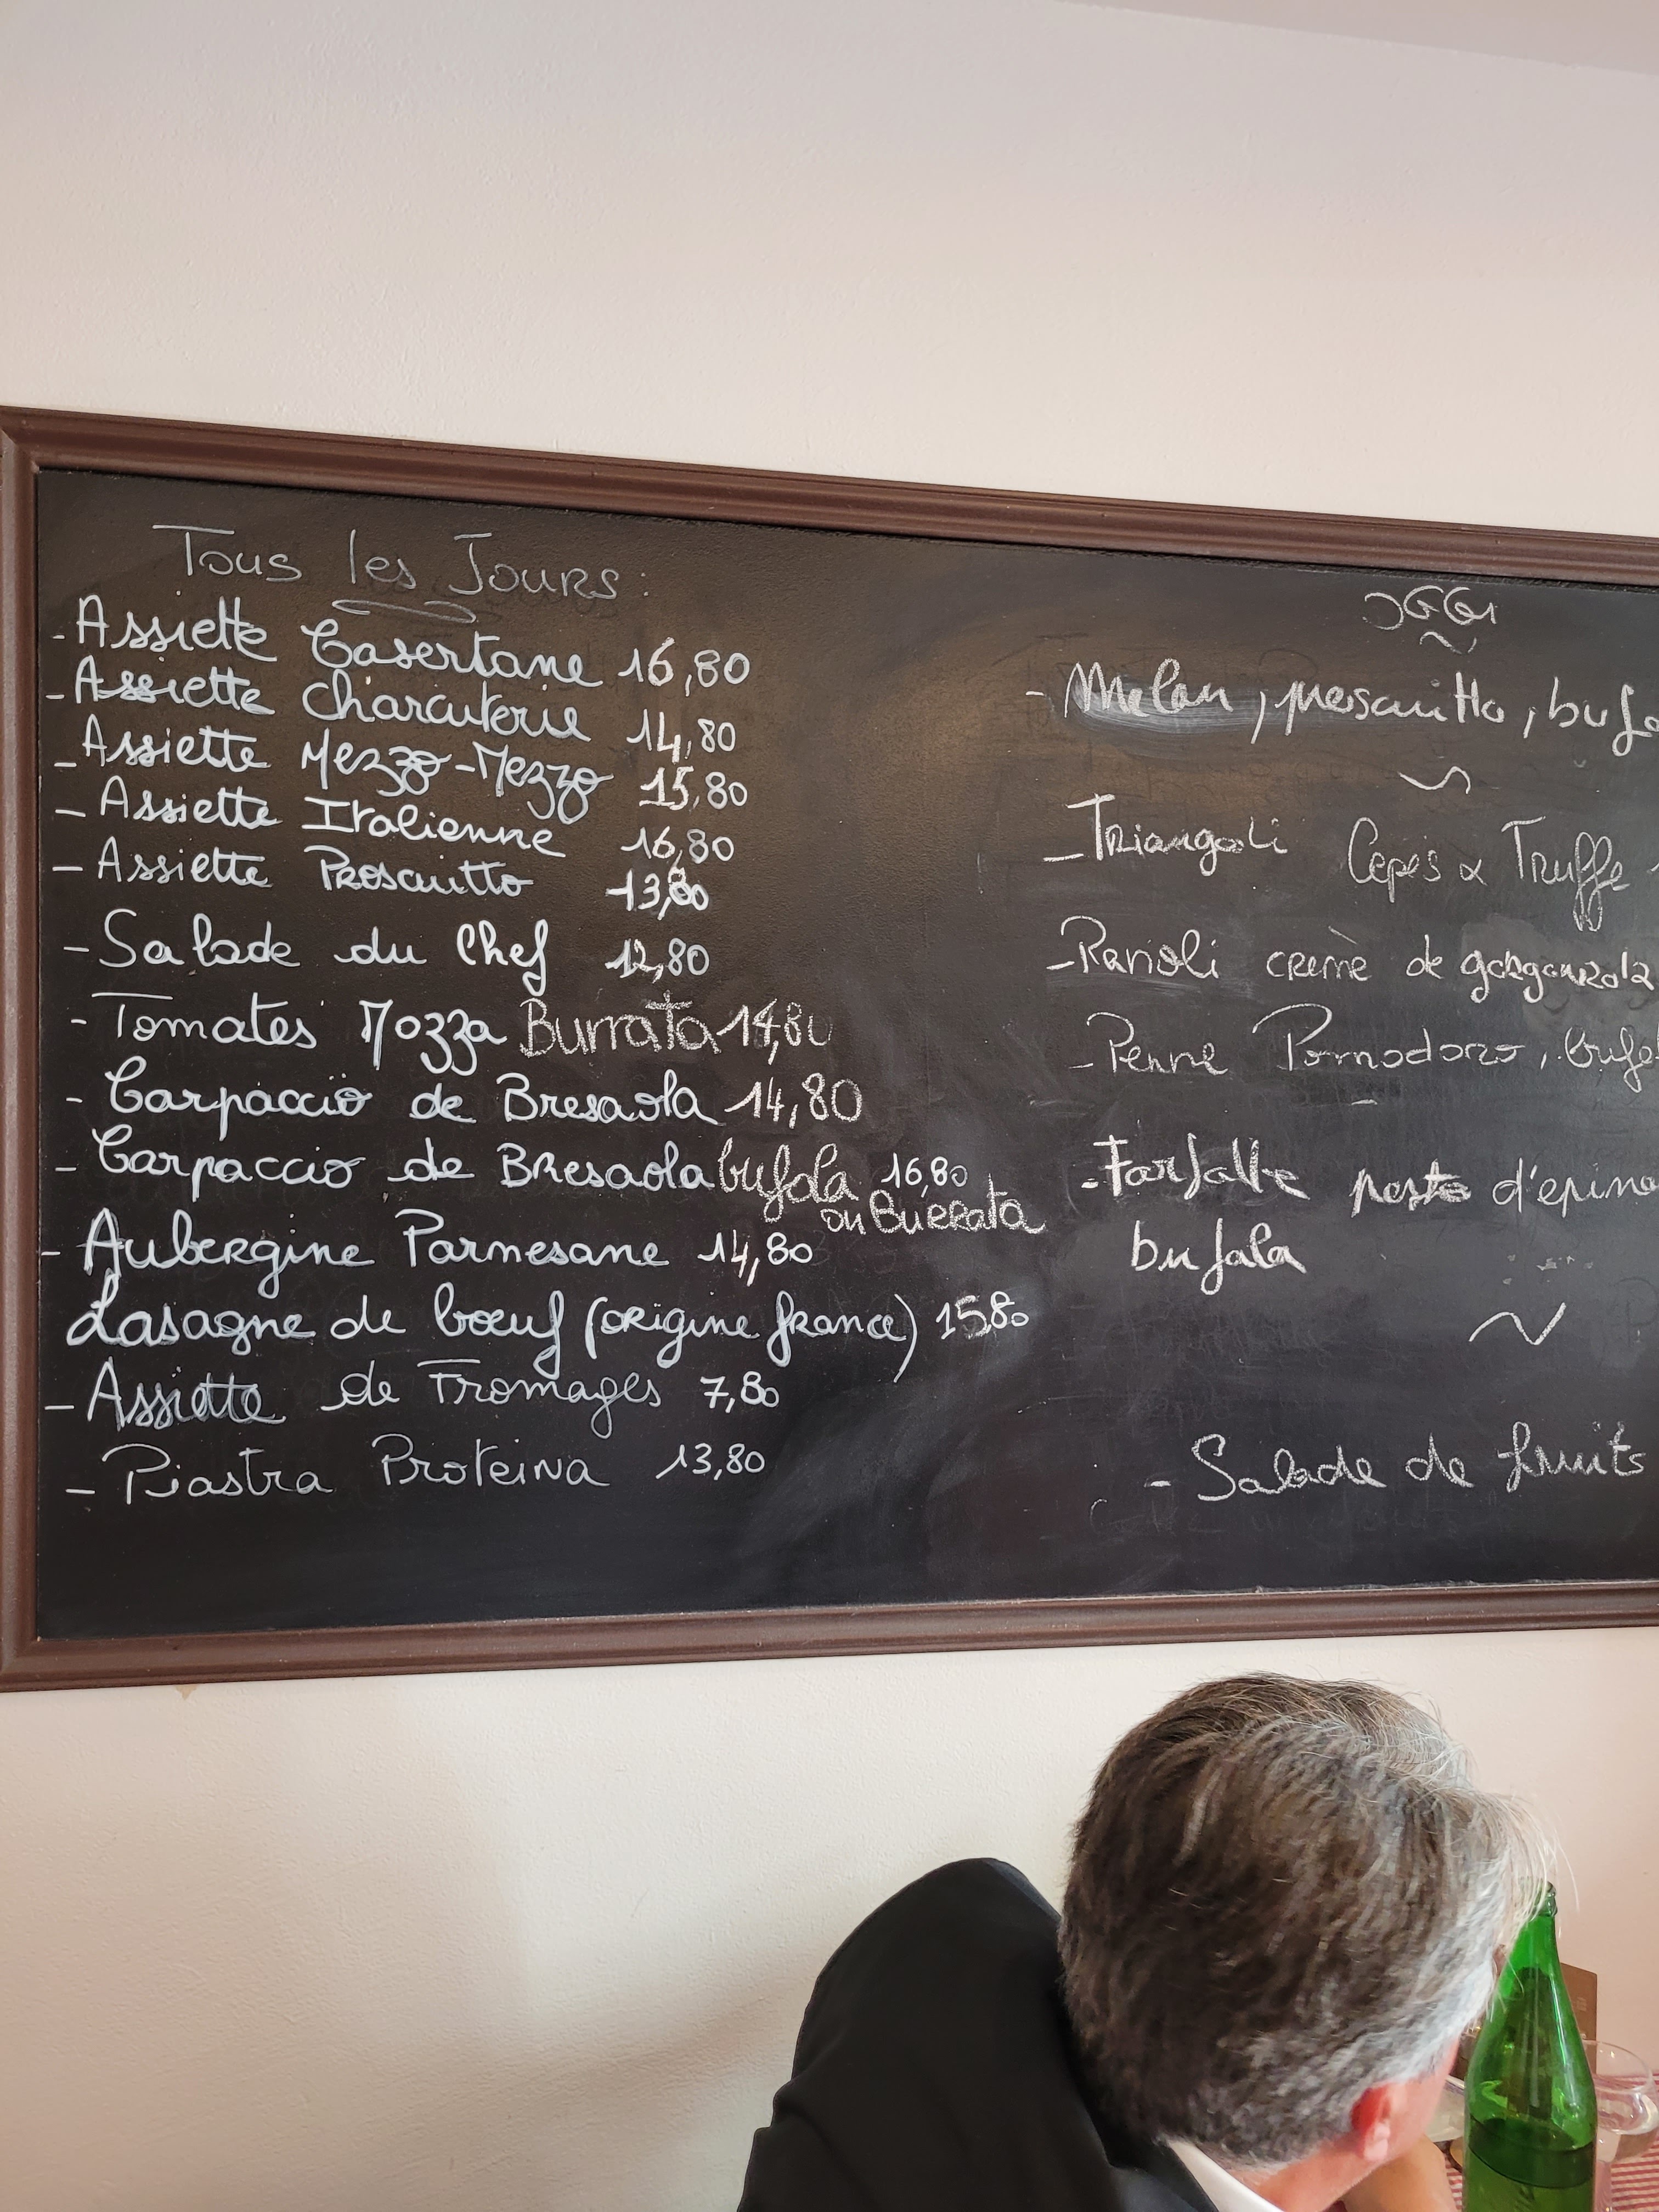 Tous les Jours:
- Assiette Casertane 16,80
- Assiette Charcuterie 14,80
- Assiette Mezzo-Mezzo 15,80
- Assiette Italienne 16,80
- Assiette Proscuitto 13,80
- Salade du Chef 12,80
- Tomates Mozza Burrata 14,80
- Carpaccio de Bresaola 14,80
- Carpaccio de Bresaola bufala 16,80
ou Burrata
- Aubergine Parmesane 14,80
Lasagne de bœuf (origine france) 15,80
- Assiette de Fromages 7,80
- Piastra Proteina 13,80
OGGI
- Melon, proscuitto, bufa
- Triangoli Cepes & Truffe
- Ravioli crème de gorgonzola
- Penne Pomodoro, bufa
- Farfalle pesto d'epina
bufala
- Salade de fruits